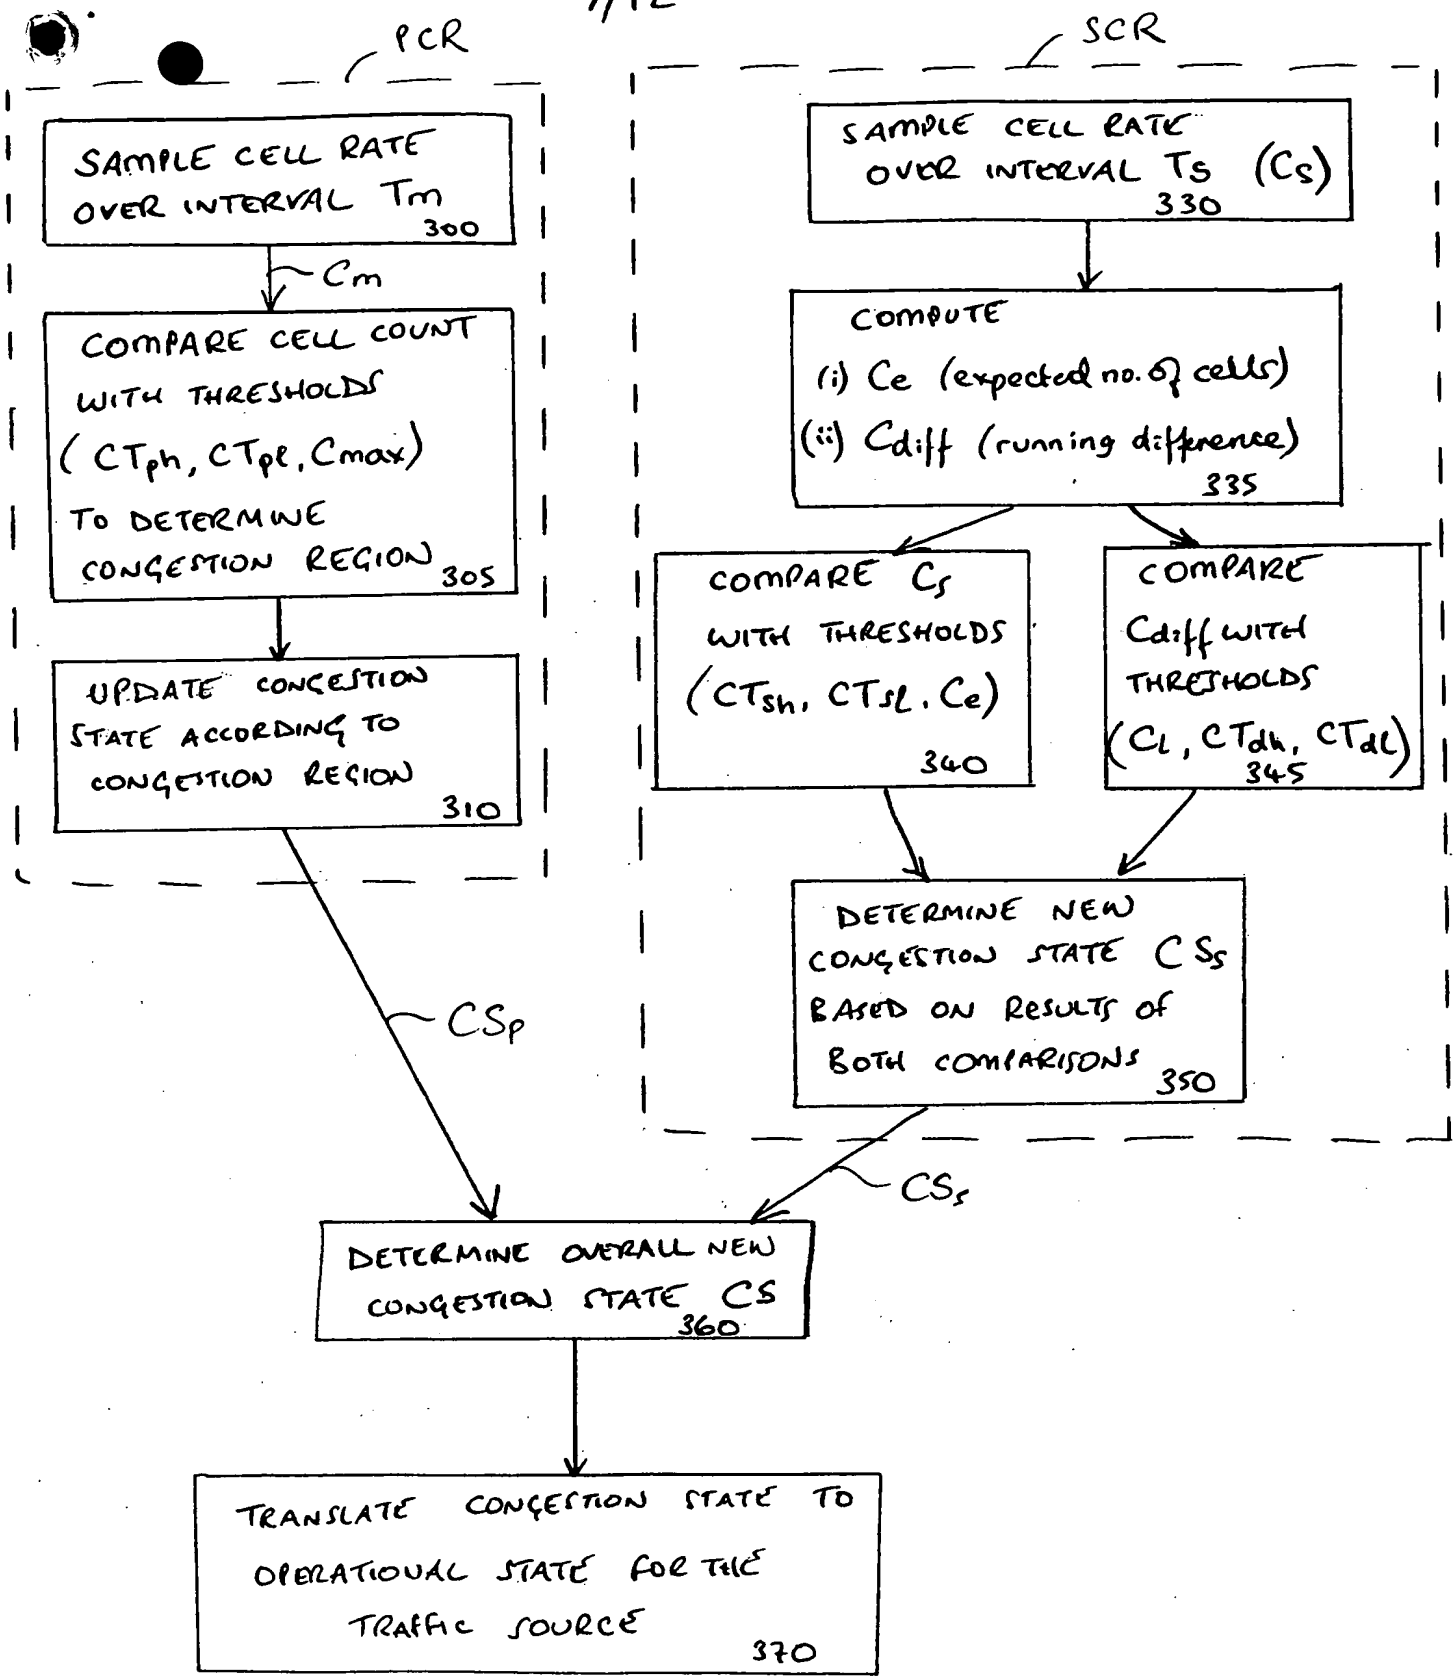 7/12
PCR
SAMPLE CELL RATE
OVER INTERVAL Tm
300
Cm
COMPARE CELL COUNT
WITH THRESHOLDS
(CTph, CTpl, Cmax)
TO DETERMINE
CONGESTION REGION
305
UPDATE CONGESTION
STATE ACCORDING TO
CONGESTION REGION
310
CSp
SCR
SAMPLE CELL RATE
OVER INTERVAL Ts (Cs)
330
COMPUTE
(i) Ce (expected no. of cells)
(ii) Cdiff (running difference)
335
COMPARE Cs
WITH THRESHOLDS
(CTsh, CTsl, Ce)
340
COMPARE
Cdiff WITH
THRESHOLDS
(CL, CTdh, CTdl)
345
DETERMINE NEW
CONGESTION STATE CSs
BASED ON RESULTS OF
BOTH COMPARISONS
350
CSs
DETERMINE OVERALL NEW
CONGESTION STATE CS
360
TRANSLATE CONGESTION STATE TO
OPERATIONAL STATE FOR THE
TRAFFIC SOURCE
370